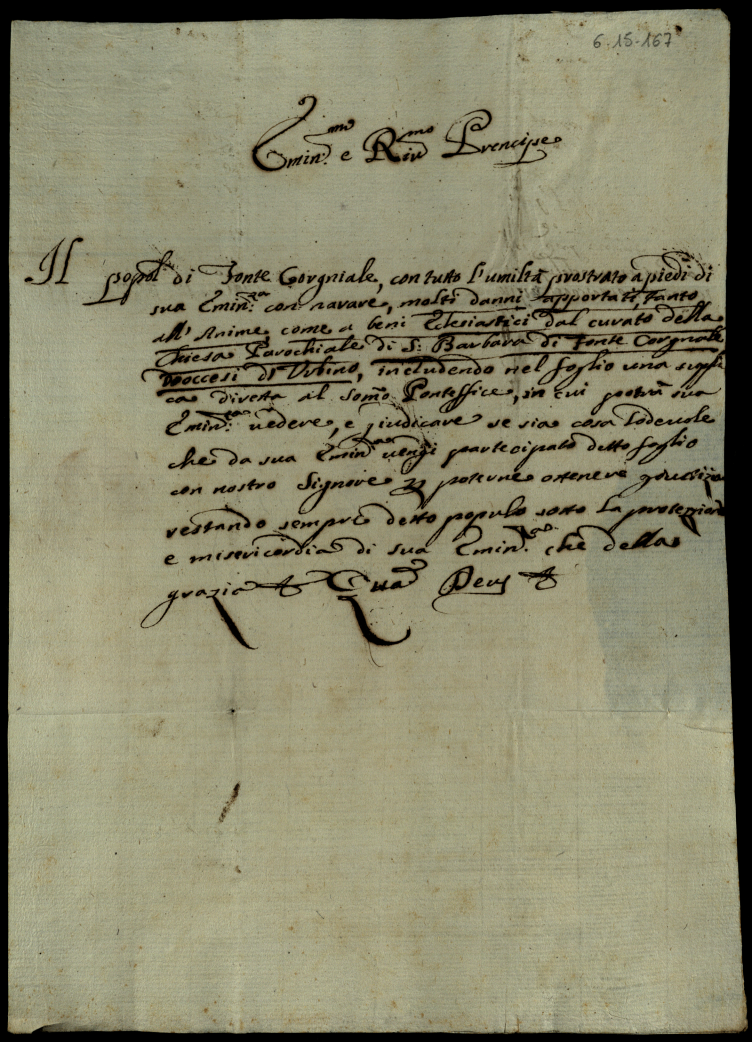 6-15-167
Emin.mo e Riu.mo Prencipe
Il popol. di Fonte Corgniale, con tutto l'umiltà prostrato a piedi di
sua Emin.za con narare, molti danni apportati, tanto
all'Anime come a beni Eclesiastici dal curato della
Chiesa Parochiale di S: Barbara di Fonte Corgniale
Dioccesi di Urbino, includendo nel foglio una suppli
ca diretta al Som̃o Pontefice, in cui potrà sua
Emin.za vedere, e giudicare se sia cosa lodevole
che da sua Emin.za vengi partecipato detto foglio
con nostro Signore p poterne ottenere giustizia
restando sempre detto populo sotto la protezzione
e misericordia di sua Emin.za che della
grazia Deus